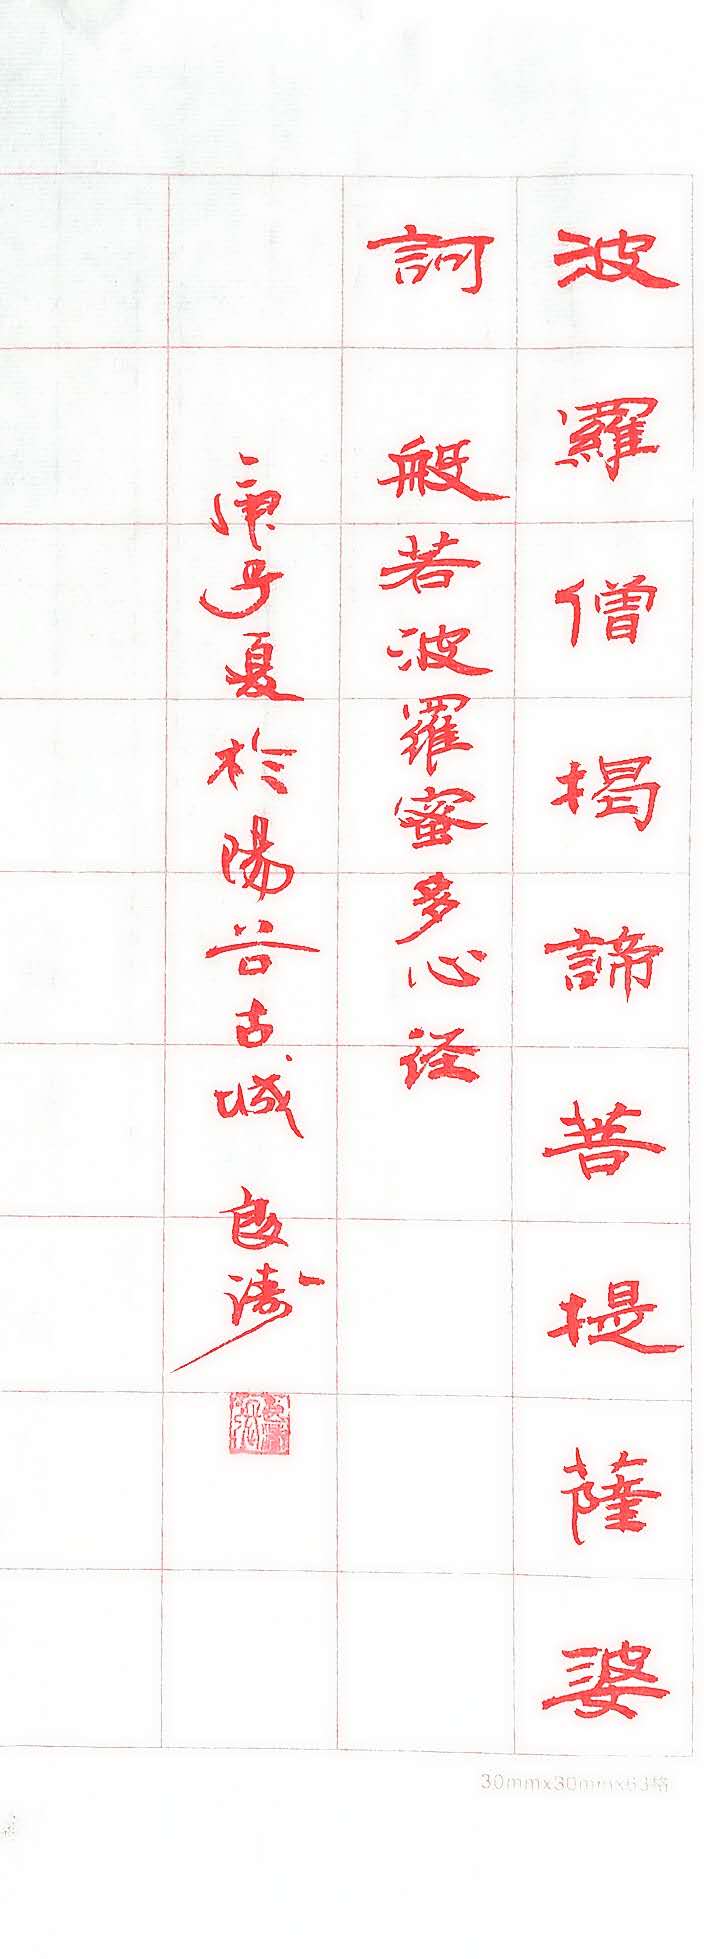 波羅僧揭諦菩提薩婆
訶 般若波羅蜜多心经
庚子夏於陽谷古城 良濤
30mmx30mmx63格